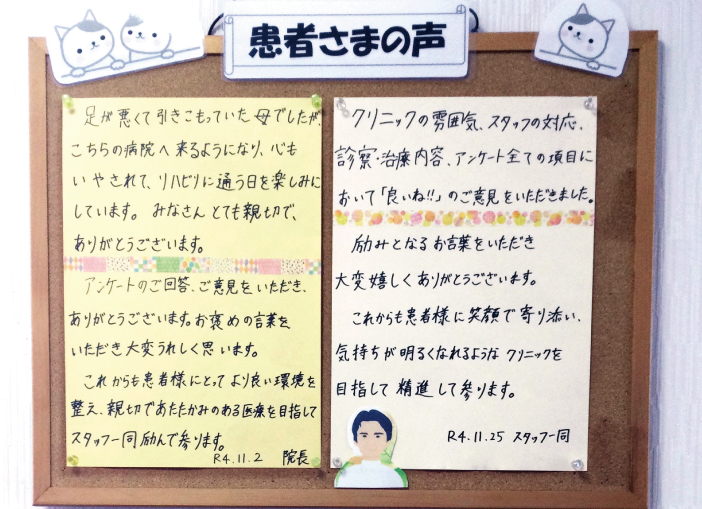 患者さまの声
足が悪くて引きこもっていた母でしたが、
こちらの病院へ来るようになり、心も
いやされて、リハビリに通う日を楽しみに
しています。みなさんとても親切で、
ありがとうございます。
アンケートのご回答、ご意見をいただき、
ありがとうございます。お褒めの言葉を
いただき大変うれしく思います。
これからも患者様にとってより良い環境を
整え、親切であたたかみのある医療を目指して
スタッフ一同励んで参ります。
R4.11.2 院長
クリニックの雰囲気、スタッフの対応、
診察・治療内容、アンケート全ての項目に
おいて「良いね!!」のご意見をいただきました。
励みとなるお言葉をいただき
大変嬉しくありがとうございます。
これからも患者様に笑顔で寄り添い、
気持ちが明るくなれるようなクリニックを
目指して精進して参ります。
R4.11.25 スタッフ一同